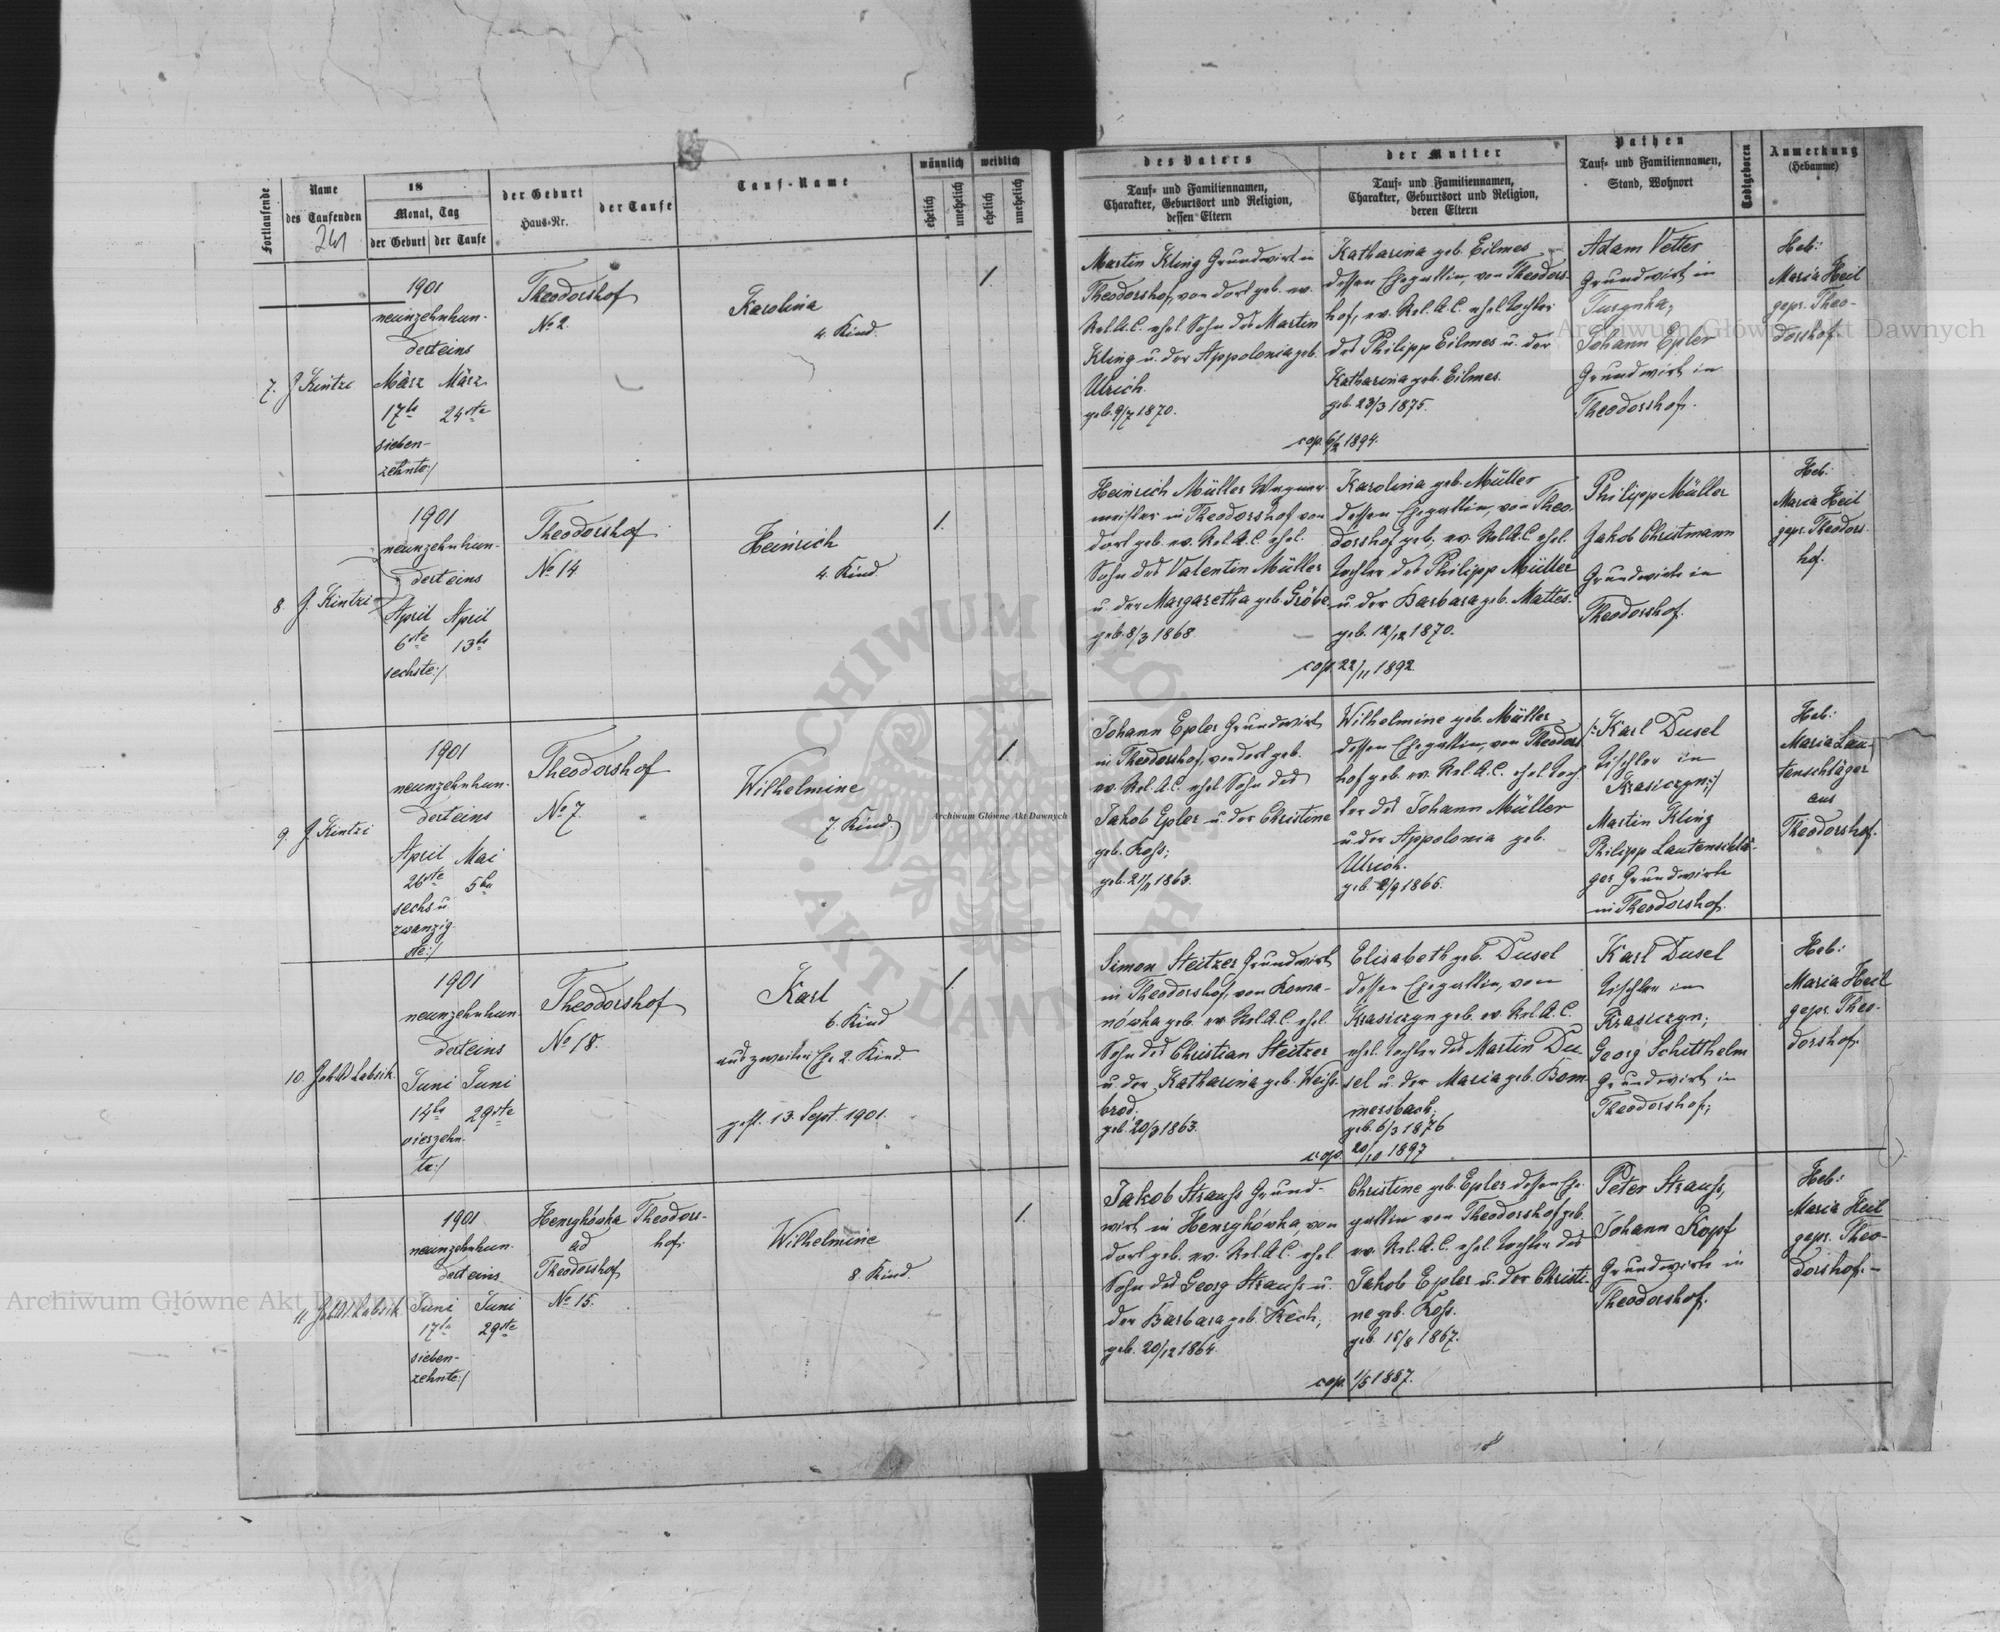 Fortlaufende
Name
des Taufenden
241
18
Monat, Tag
der Geburt
der Taufe
der Geburt
Haus-Nr.
der Taufe
Tauf-Name
männlich
weiblich
ehelich
unehelich
ehelich
unehelich
des Vaters
Tauf- und Familiennamen,
Charakter, Geburtsort und Religion,
dessen Eltern
der Mutter
Tauf- und Familiennamen,
Charakter, Geburtsort und Religion,
deren Eltern
Pathen
Tauf- und Familiennamen,
Stand, Wohnort
Todtgeboren
Anmerkung
(Hebamme)
7.
J. Kintzi
1901
neunzehnhun-
derteins
März März
17te 24ste
sieben-
zehnte:/
Theodorshof
No 2.
Karolina
4. Kind.
1.
Martin Kling Grundwirt in
Theodorshof, von dort geb. ev.
Rel. A.C. ehel. Sohn des Martin
Kling u. der Appolonia geb.
Ulrich.
geb. 9/7 1870.
Katharina geb. Eilmes
dessen Ehegattin, von Theodors-
hof, ev. Rel. A.C. ehel. Tochter
des Philipp Eilmes u. der
Katharina geb. Eilmes.
geb. 23/3 1875.
cop. 6/2 1894.
Adam Vetter
Grundwirt in
Turynka;
Johann Epler
Grundwirt in
Theodorshof.
Heb:
Maria Heil
gepr. Theo-
dorshof.
8.
J. Kintzi
1901
neunzehnhun-
derteins
April April
6ste 13te
sechste:/
Theodorshof
No 14
Heinrich
4. Kind.
1.
Heinrich Müller Wagner-
meister in Theodorshof von
dort geb. ev. Rel. A.C. ehel.
Sohn des Valentin Müller
u. der Margaretha geb. Gröbe
geb. 8/3 1868
Karolina geb. Müller
dessen Ehegattin, von Theo-
dorshof geb. ev. Rel. A.C. ehel.
Tochter des Philipp Müller
u. der Barbara geb. Mattes.
geb. 12/12 1870.
cop. 22/11 1892
Philipp Müller
Jakob Christmann
Grundwirte in
Theodorshof.
Heb:
Maria Heil
gepr. Theodors-
hof.
9.
J. Kintzi
1901
neunzehnhun-
derteins
April Mai
26ste 5te
sechs u.
zwanzig-
ste:/
Theodorshof
No 7.
Wilhelmine
7. Kind.
1.
Johann Epler Grundwirt
in Theodorshof, von dort geb.
ev. Rel. A.C. ehel. Sohn des
Jakob Epler u. der Christine
geb. Koss;
1863.
Wilhelmine geb. Müller
dessen Ehegattin, von Theodors-
hof geb. ev. Rel. A.C. ehel. Toch-
ter des Johann Müller
u. der Appolonia geb.
Ulrich.
1865.
Karl Dusel
Tischler in
Krasiczyn:/
Martin Kling
Philipp Lautenschlä-
ger Grundwirte
in Theodorshof.
Heb:
Maria Lau-
tenschläger
aus
Theodorshof.
10.
1901
neunzehnhun-
derteins
Juni Juni
14te 29ste
vierzehn-
te:/
Theodorshof
No 18.
Karl
6. Kind
aus zweiter Ehe 2. Kind.
gest. 13. Sept. 1901.
1.
Simon Steitzer Grundwirt
in Theodorshof, von Roma-
nówka geb. ev. Rel. A.C. ehel.
Sohn des Christian Steitzer
u. der Katharina geb. Weiss-
brod.
geb. 20/3 1863.
Elisabeth geb. Dusel
dessen Ehegattin, von
Krasiczyn geb. ev. Rel. A.C.
ehel. Tochter des Martin Du-
sel u. der Maria geb. Bom-
mersbach;
geb. 6/3 1876
cop. 20/10 1897
Karl Dusel
Tischler in
Krasiczyn;
Georg Schitthelm
Grundwirt in
Theodorshof;
Heb:
Maria Heil
gepr. Theo-
dorshof.
11.
1901
neunzehnhun-
derteins
Juni Juni
17te 29ste
sieben-
zehnte:/
Henrykówka
ad
Theodorshof
No 15.
Theodors-
hof.
Wilhelmine
8. Kind.
1.
Jakob Strauss Grund-
wirt in Henrykówka, von
dort geb. ev. Rel. A.C. ehel.
Sohn des Georg Strauss u.
der Barbara geb. Kech;
geb. 20/12 1864.
Christine geb. Epler dessen Ehe-
gattin von Theodorshof geb.
ev. Rel. A.C. ehel. Tochter des
Jakob Epler u. der Christi-
ne geb. Koss.
geb. 15/8 1867.
cop. 1/5 1887.
Peter Strauss,
Johann Kopf
Grundwirte in
Theodorshof.
Heb:
Maria Heil
gepr. Theo-
dorshof.-
Archiwum Główne Akt Dawnych
Archiwum Główne Akt Dawnych
Archiwum Główne Akt Dawnych
ARCHIWUM GŁÓWNE AKT DAWNYCH